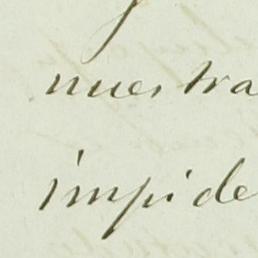 nuestra
impide